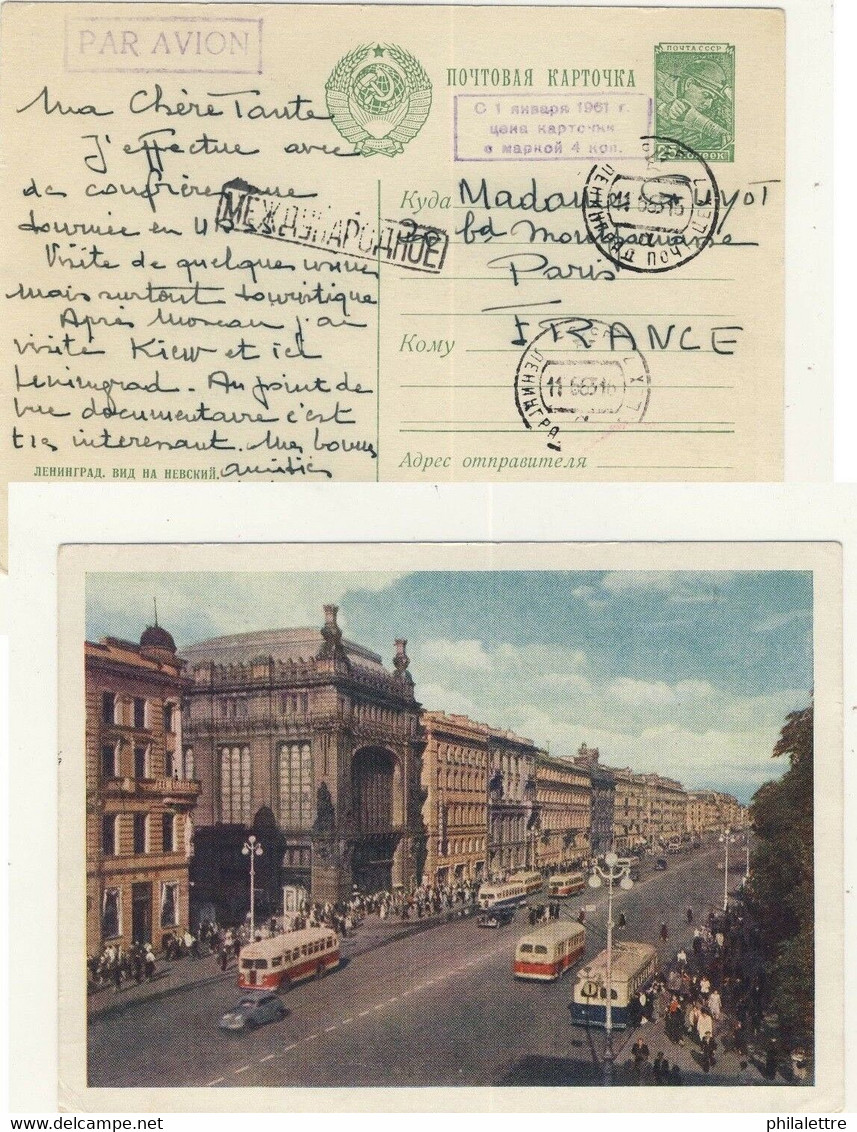 PAR AVION
ПОЧТОВАЯ КАРТОЧКА
ПОЧТА СССР
С 1 января 1961 г.
цена карточки
с маркой 4 коп.
Ma Chère Tante
J'effectue avec
des confrères une
tournée en URSS
Visite de quelques usines
mais surtout touristique
Après Moscou j'ai
visité Kiew et ici
Leningrad. Au point de
vue documentaire c'est
très interessant. Mes bonnes
amitiés
МЕЖДУНАРОДНОЕ
Куда Madame
bd Montparnasse
Paris
FRANCE
Кому
Адрес отправителя
ЛЕНИНГРАД ПОЧ
ЛЕНИНГРА
ЛЕНИНГРАД. ВИД НА НЕВСКИЙ.
philalettre